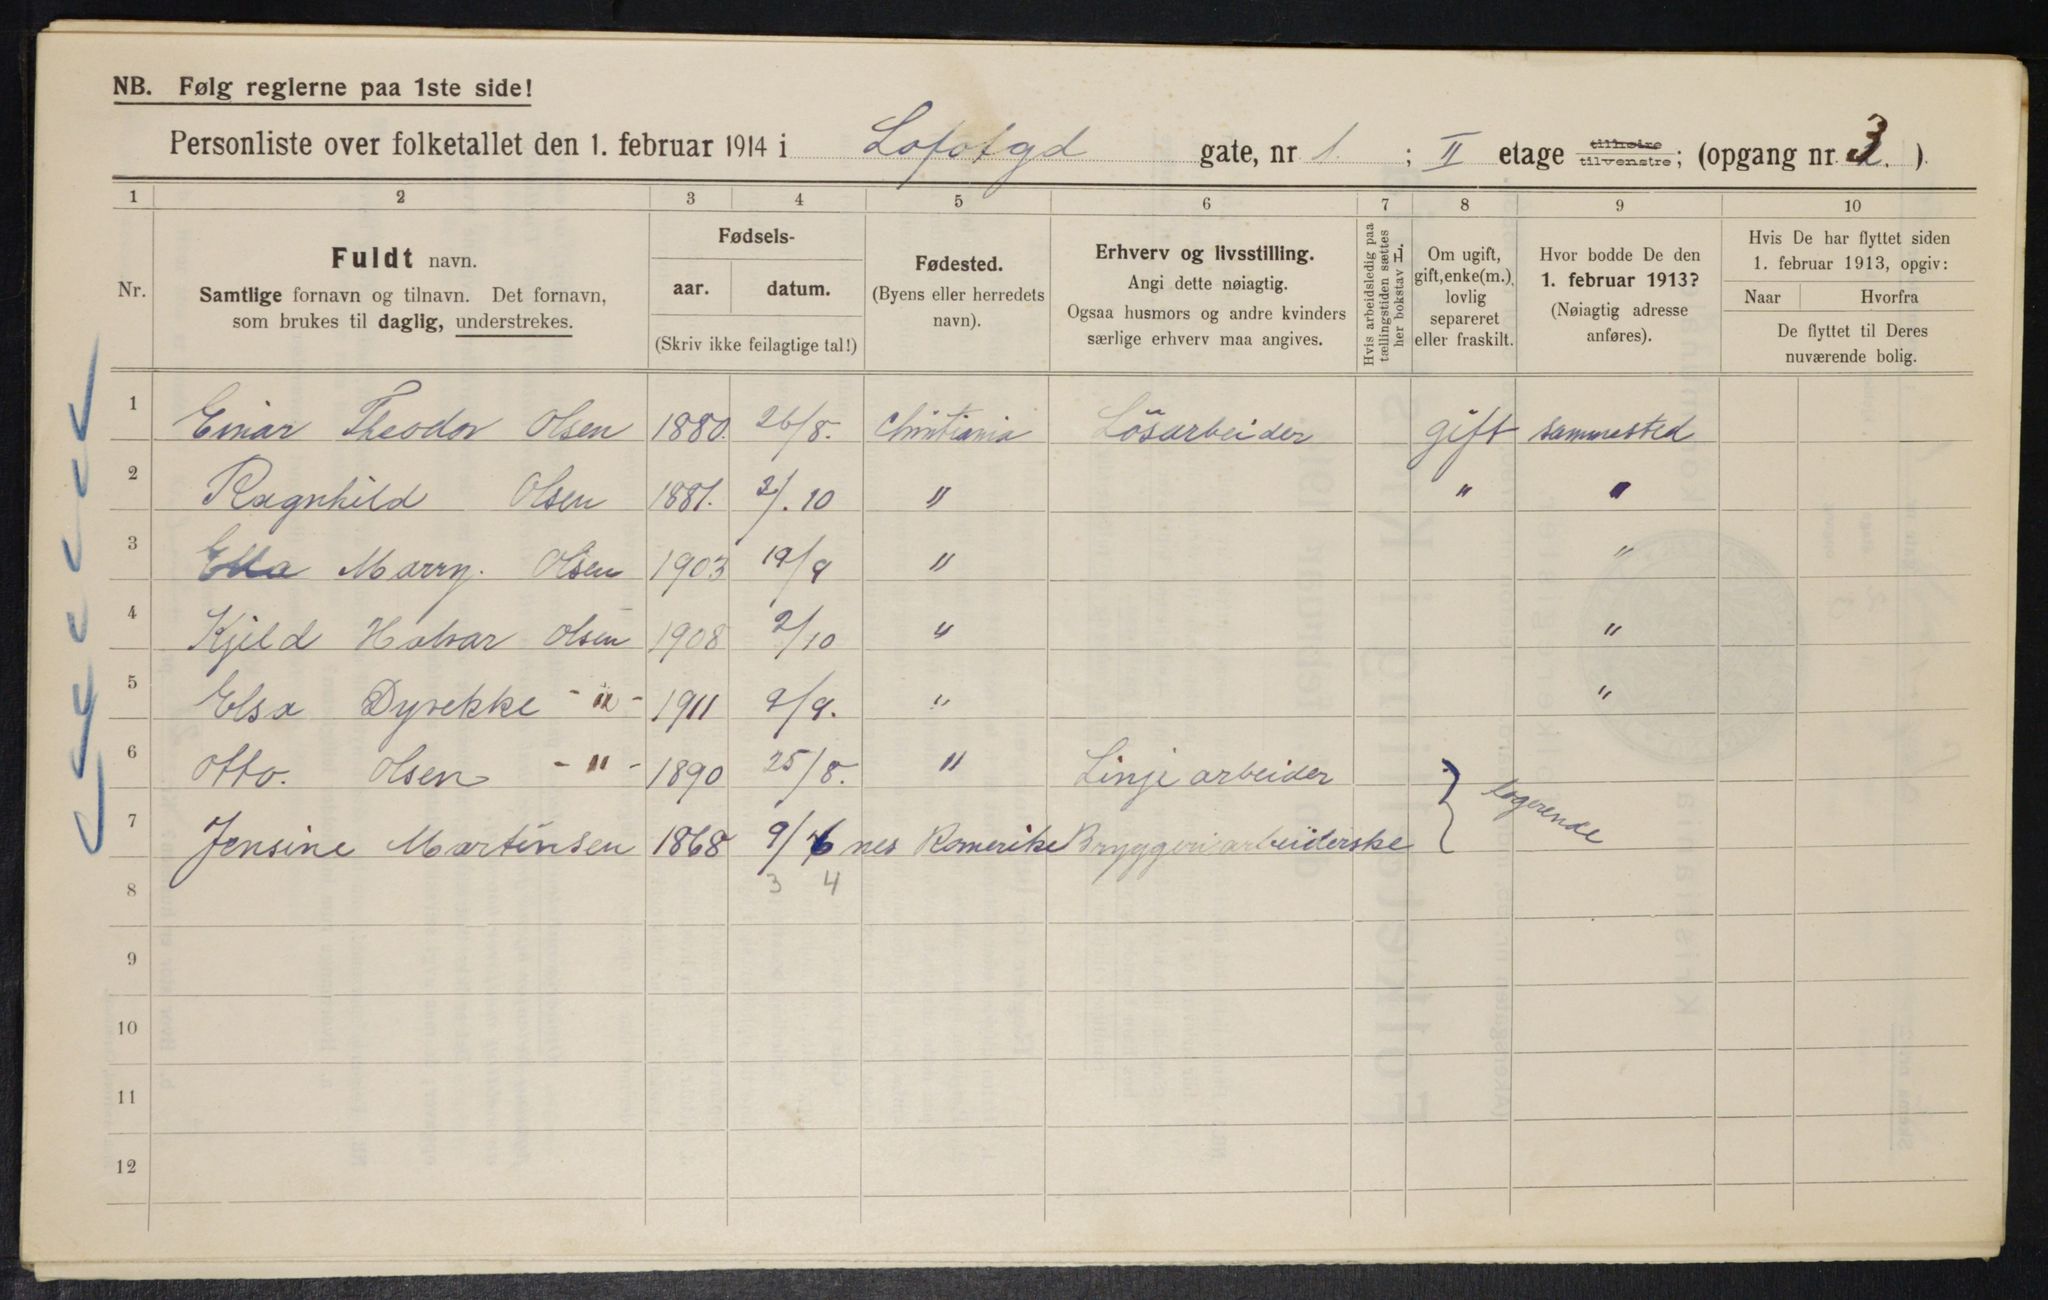 NB. Følg reglerne paa 1ste side!
Personliste over folketallet den 1. februar 1914 i Lofotgd gate, nr. 1. ; II etage tilhøire tilvenstre; (opgang nr. 3. ).
1 2 3 4 5 6 7 8 9 10
Nr.
Fuldt navn.
Samtlige fornavn og tilnavn. Det fornavn,
som brukes til daglig, understrekes.
Fødsels-
aar. datum.
(Skriv ikke feilagtige tal!)
Fødested.
(Byens eller herredets
navn).
Erhverv og livsstilling.
Angi dette nøiagtig.
Ogsaa husmors og andre kvinders
særlige erhverv maa angives.
Hvis arbeidsledig paa
tællingstiden sættes
her bokstav L.
Om ugift,
gift, enke(m.),
lovlig
separeret
eller fraskilt.
Hvor bodde De den
1. februar 1913?
(Nøiagtig adresse
anføres).
Hvis De har flyttet siden
1. februar 1913, opgiv:
Naar Hvorfra
De flyttet til Deres
nuværende bolig.
1 Einar Theodor Olsen 1880. 26/8. Christiania Lösarbeider gift sammested
2 Ragnhild Olsen 1881. 2/.10 " " "
3 Ella Marry. Olsen 1903 19/9 " "
4 Kjeld Halvar Olsen 1908 2/10 " "
5 Elsa Dyvekke - " - 1911 9/9. " "
6 Otto. Olsen - " - 1890 25/8. " Linje arbeider
logerende
7 Jensine Martinsen 1868 9/6 nes Romerike Bryggeriarbeiderske
3 4
8
9
10
11
12